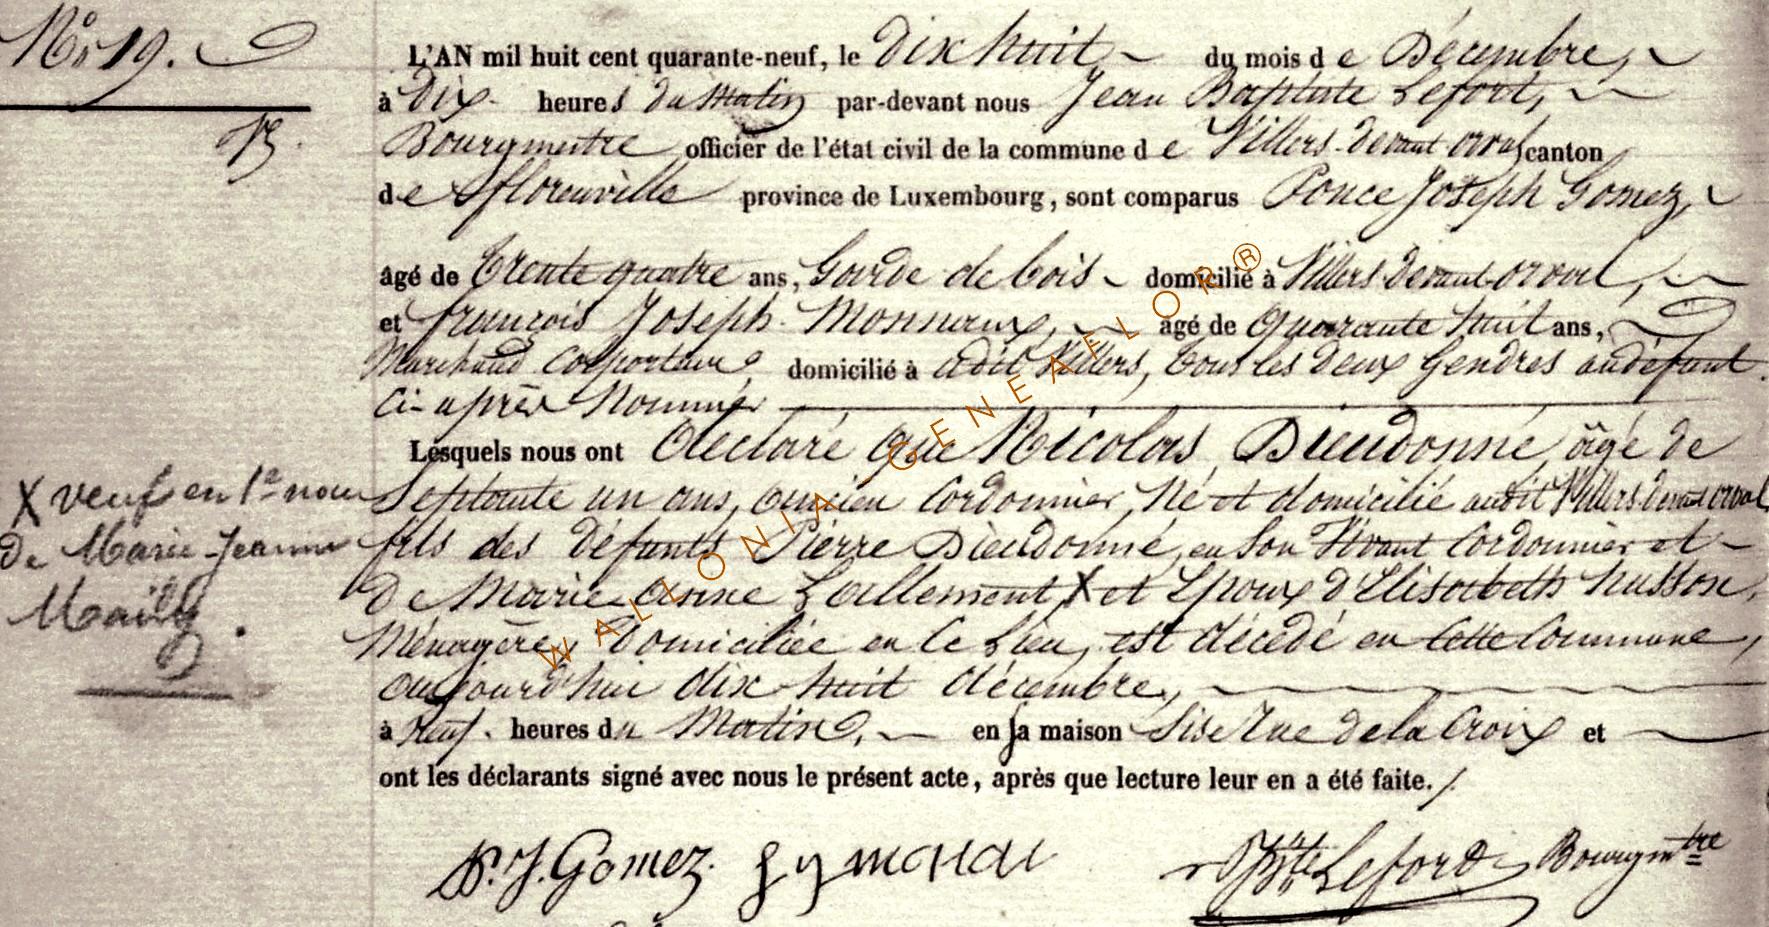 N° 19.
L'AN mil huit cent quarante-neuf, le dix huit du mois de Décembre,
à Dix heures du Matin par-devant nous Jean Baptiste Lefort,
Bourgmestre officier de l'état civil de la commune de Villers-devant orval canton
de florenville province de Luxembourg, sont comparus Ponce Joseph Gomez,
âgé de trente quatre ans, Garde de bois domicilié à Villers-devant-orval,
et françois Joseph Monnaux, âgé de Quarante huit ans,
Marchand Colporteur, domicilié à audit Villers, tous les deux Gendres audéfunt
Ci-après Nommé
Lesquels nous ont déclaré que Nicolas Dieudonné, âgé de
Septante un ans, ancien Cordonnier, Né et domicilié audit Villers-devant orval
fils des Défunts Pierre Dieudonné, en Son Vivant Cordonnier et
de Marie anne Lallement X et Epoux d'Elisabeth husson,
X veuf en 1e noces
de Marie-Jeanne
Mailly.
Ménagère, Domiciliée en Ce Lieu, est décédé en Cette Commune,
aujourd'hui dix-huit décembre,
à neuf heures du Matin, en sa maison Sise Rue de la Croix et
ont les déclarants signé avec nous le présent acte, après que lecture leur en a été faite./
P. J. Gomez. JBte Lefort Bourgmtre
WALLONIA GENEAFLOR®